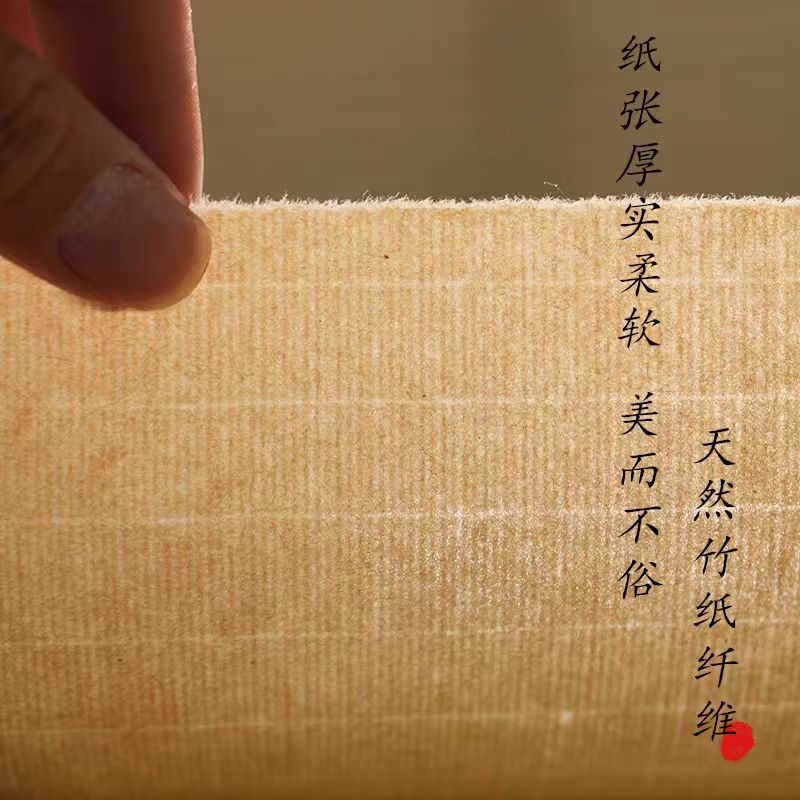 天然竹纸纤维
纸张厚实柔软 美而不俗